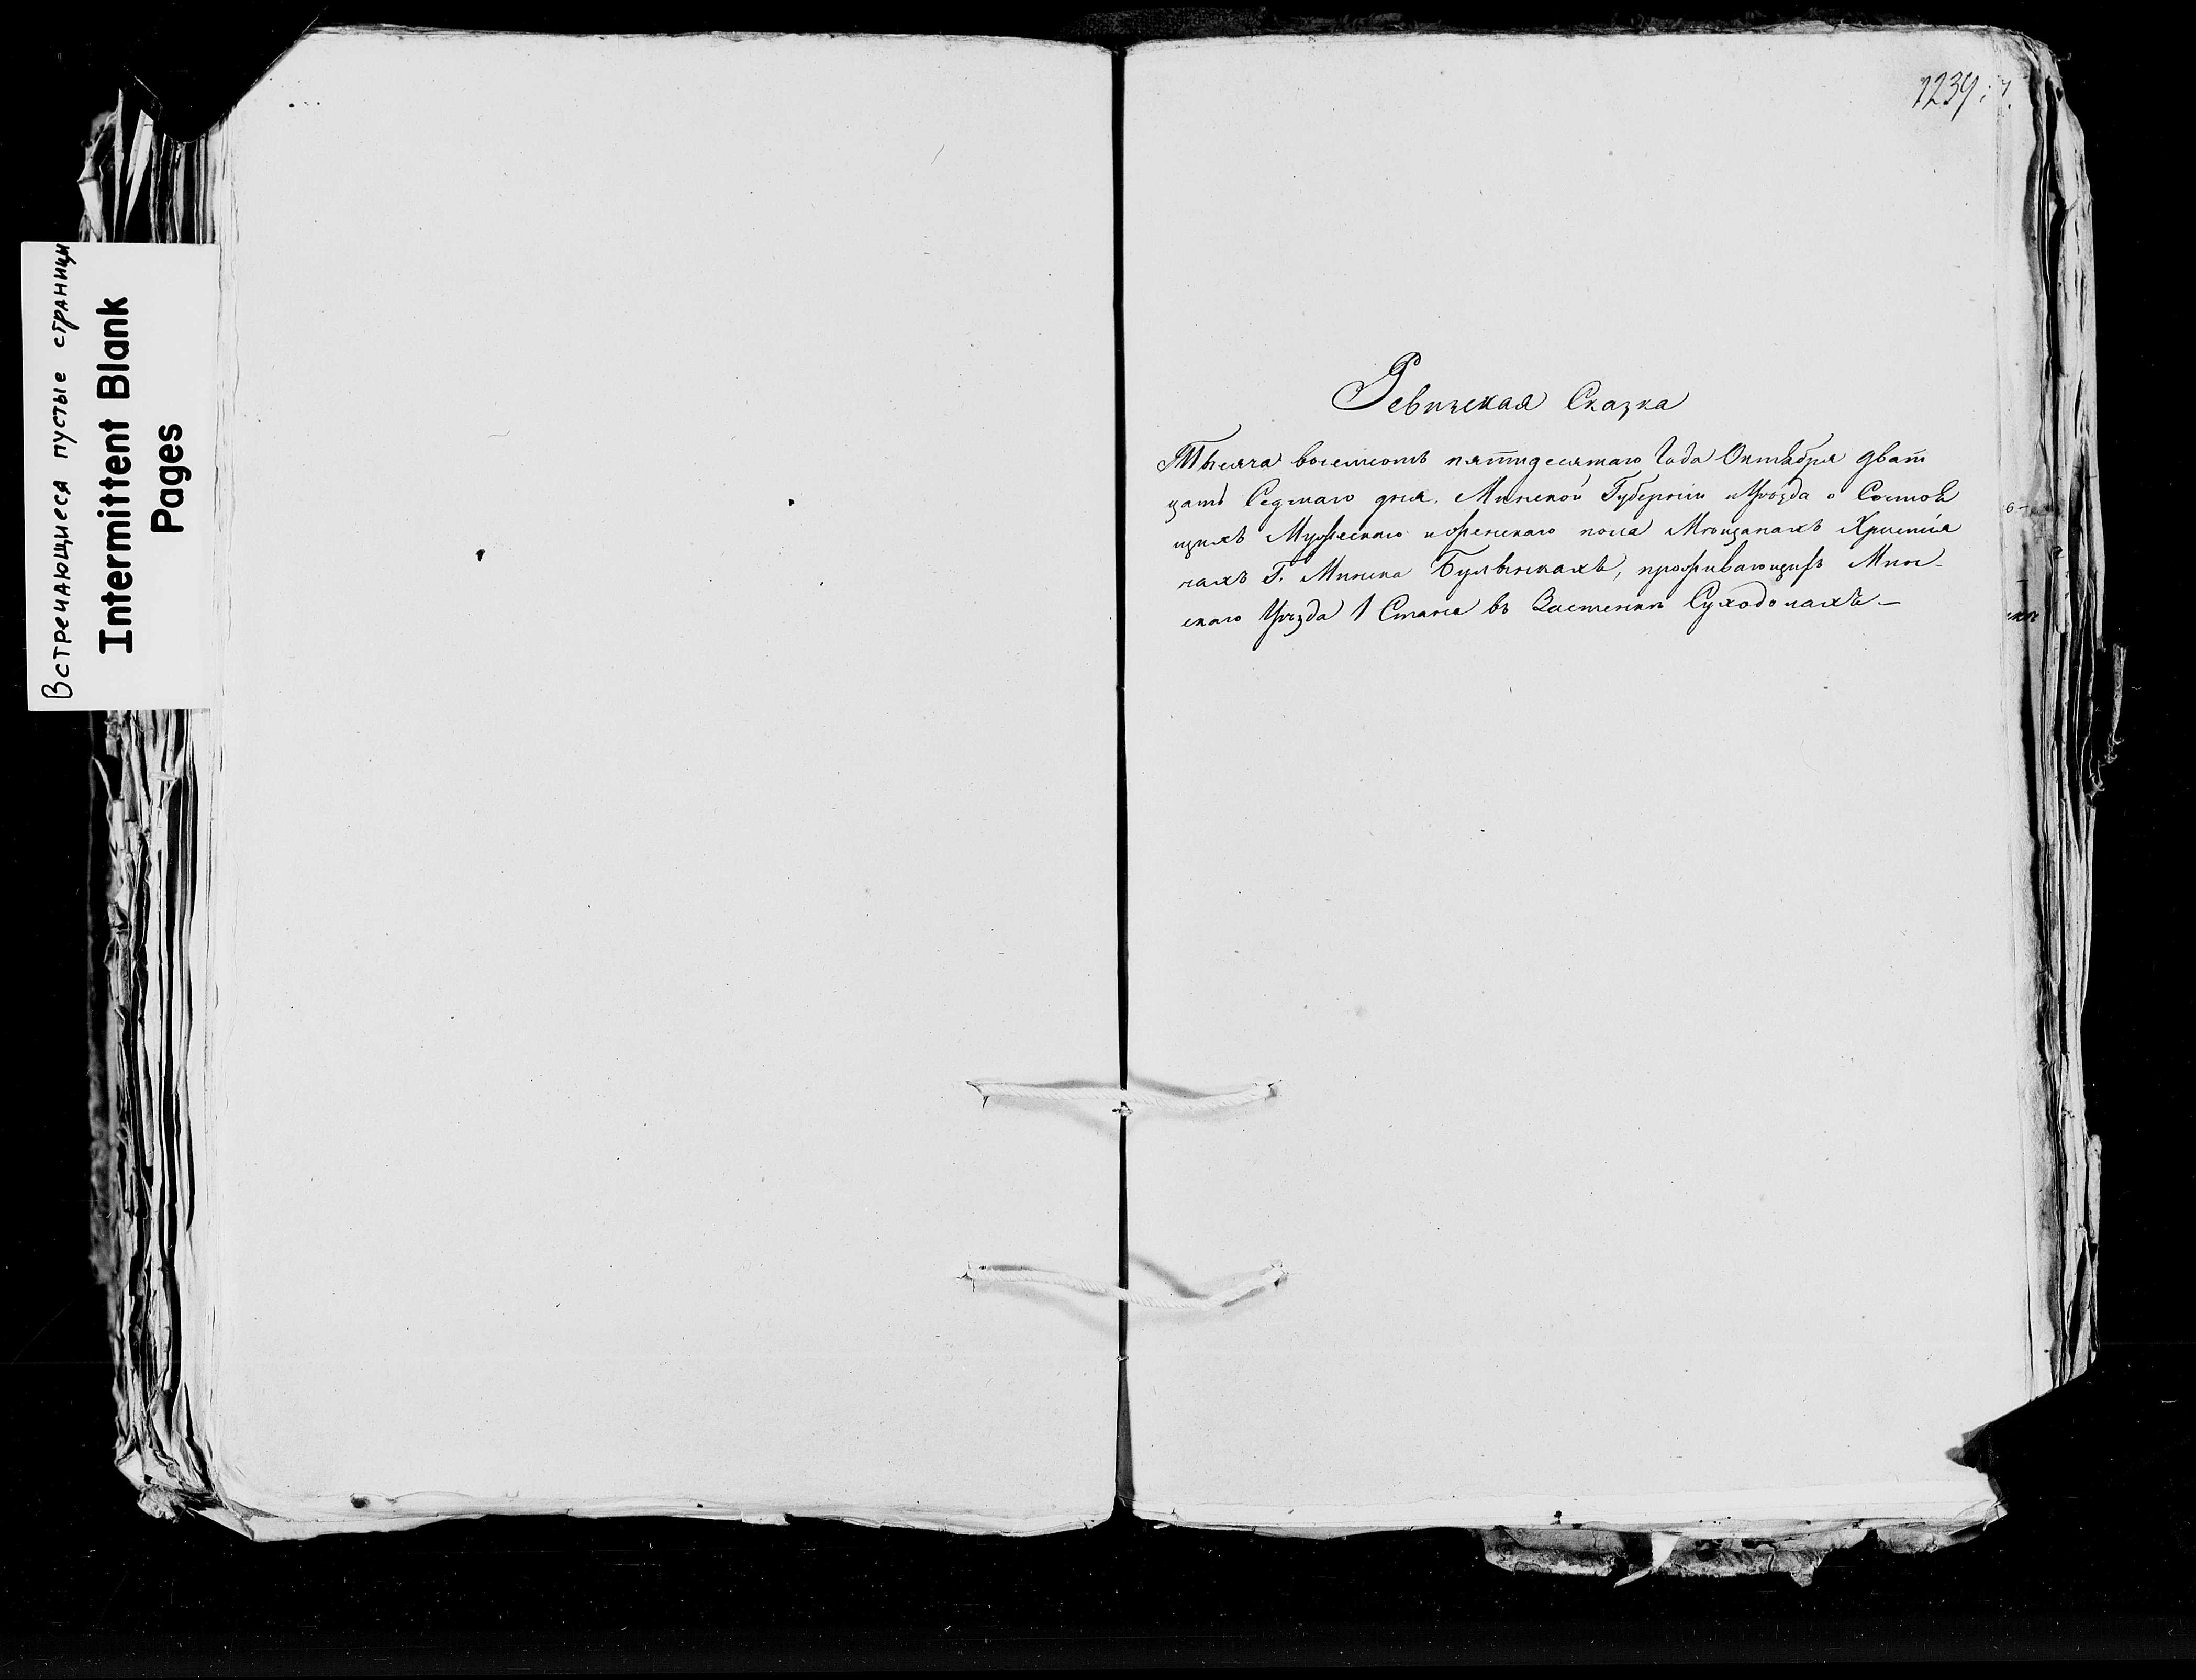 Встречающиеся пустые страницы
Intermittent Blank
Pages
1239
Ревизская Сказка
Тысяча восемсотъ пятидесятаго Года Октября дват
цать Седмаго дня. Минской Губерніи и Уѣзда о Состоя
щихъ Мужескаго и женскаго пола Мѣщанахъ Христіа
нахъ Г. Минска Булынкахъ, проживающихъ Мин-
скаго Уѣзда 1 Стана въ Застенкѣ Суходолахъ —